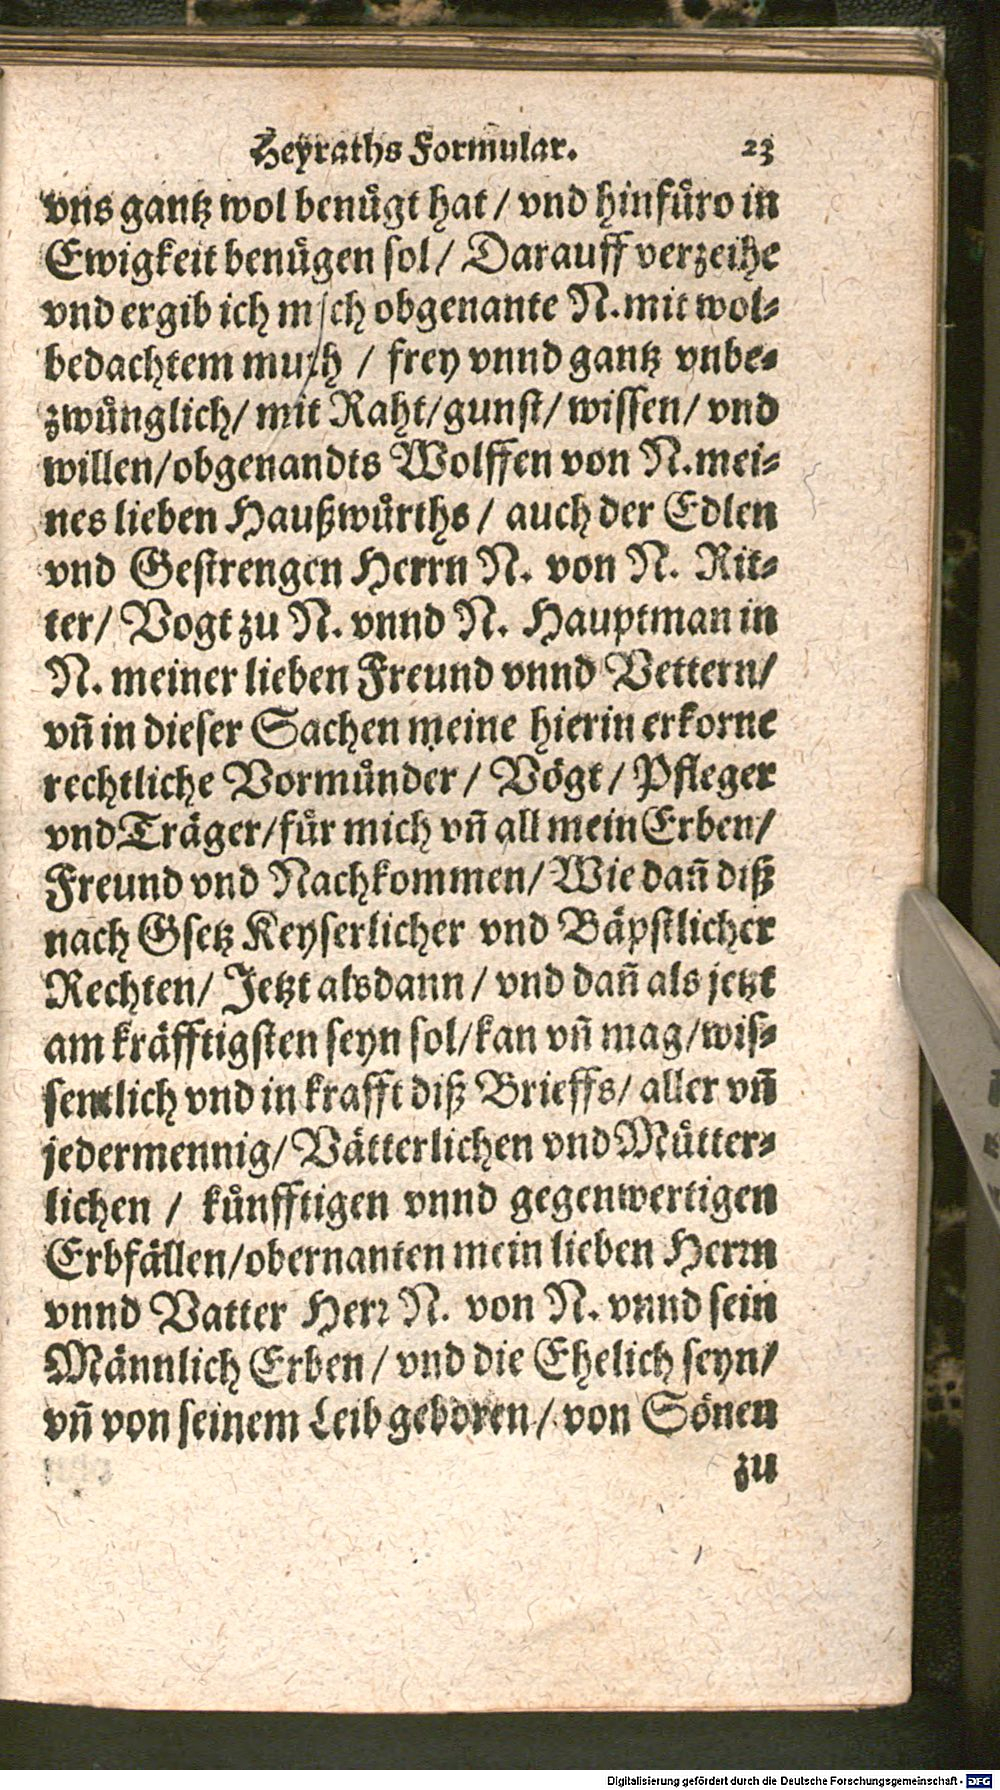 Heyraths Formular. 23
vns gantz wol benuͤgt hat / vnd hinfuͤro in
Ewigkeit benuͤgen sol / Darauff verzeihe
vnd ergib ich mich obgenante N. mit wol⸗
bedachtem muth / frey vnnd gantz vnbe⸗
zwuͤnglich / mit Raht / gunst / wissen / vnd
willen / obgenandts Wolffen von N. mei⸗
nes lieben Haußwuͤrths / auch der Edlen
vnd Gestrengen Herrn N. von N. Rit⸗
ter / Vogt zu N. vnnd N. Hauptman in
N. meiner lieben Freund vnnd Vettern /
vñ in dieser Sachen meine hierin erkorne
rechtliche Vormuͤnder / Voͤgt / Pfleger
vnd Traͤger / fuͤr mich vñ all mein Erben /
Freund vnd Nachkommen / Wie dañ diß
nach Gsetz Keyserlicher vnd Baͤpstlicher
Rechten / Jetzt alsdann / vnd dañ als jetzt
am kraͤfftigsten seyn sol / kan vñ mag / wis⸗
sentlich vnd in krafft diß Brieffs / aller vñ
jedermennig / Vaͤtterlichen vnd Muͤtter⸗
lichen / kuͤnfftigen vnnd gegenwertigen
Erbfaͤllen / obernanten mein lieben Herrn
vnnd Vatter Herr N. von N. vnnd sein
Maͤnnlich Erben / vnd die Ehelich seyn /
vñ von seinem Leib geboren / von Soͤnen
zu
Digitalisierung gefördert durch die Deutsche Forschungsgemeinschaft - DFG